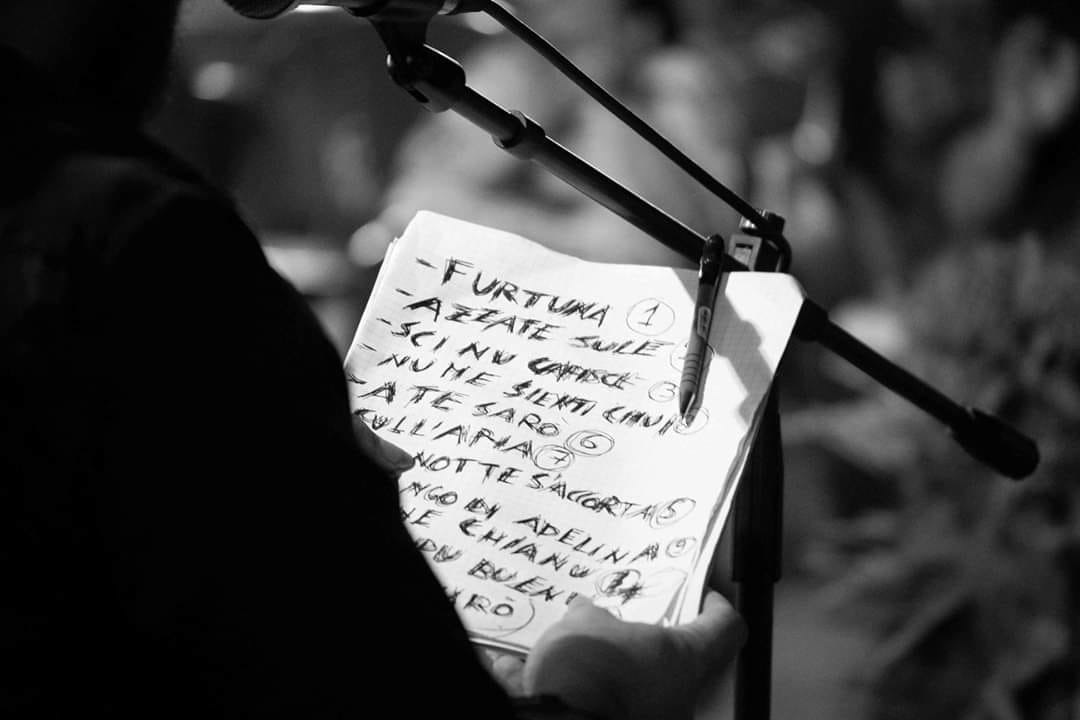 - FURTUNA 1
- AZZATE SULE
- SCI NU CAPISCE 3
- NU ME SIENTI CHIUI
- A TE SARÒ 6
CULL'APIA 7
NOTTE S'ACCORTA 5
NGO DI ADELINA 9
NE CHIANU
DU BUENI
RÒ